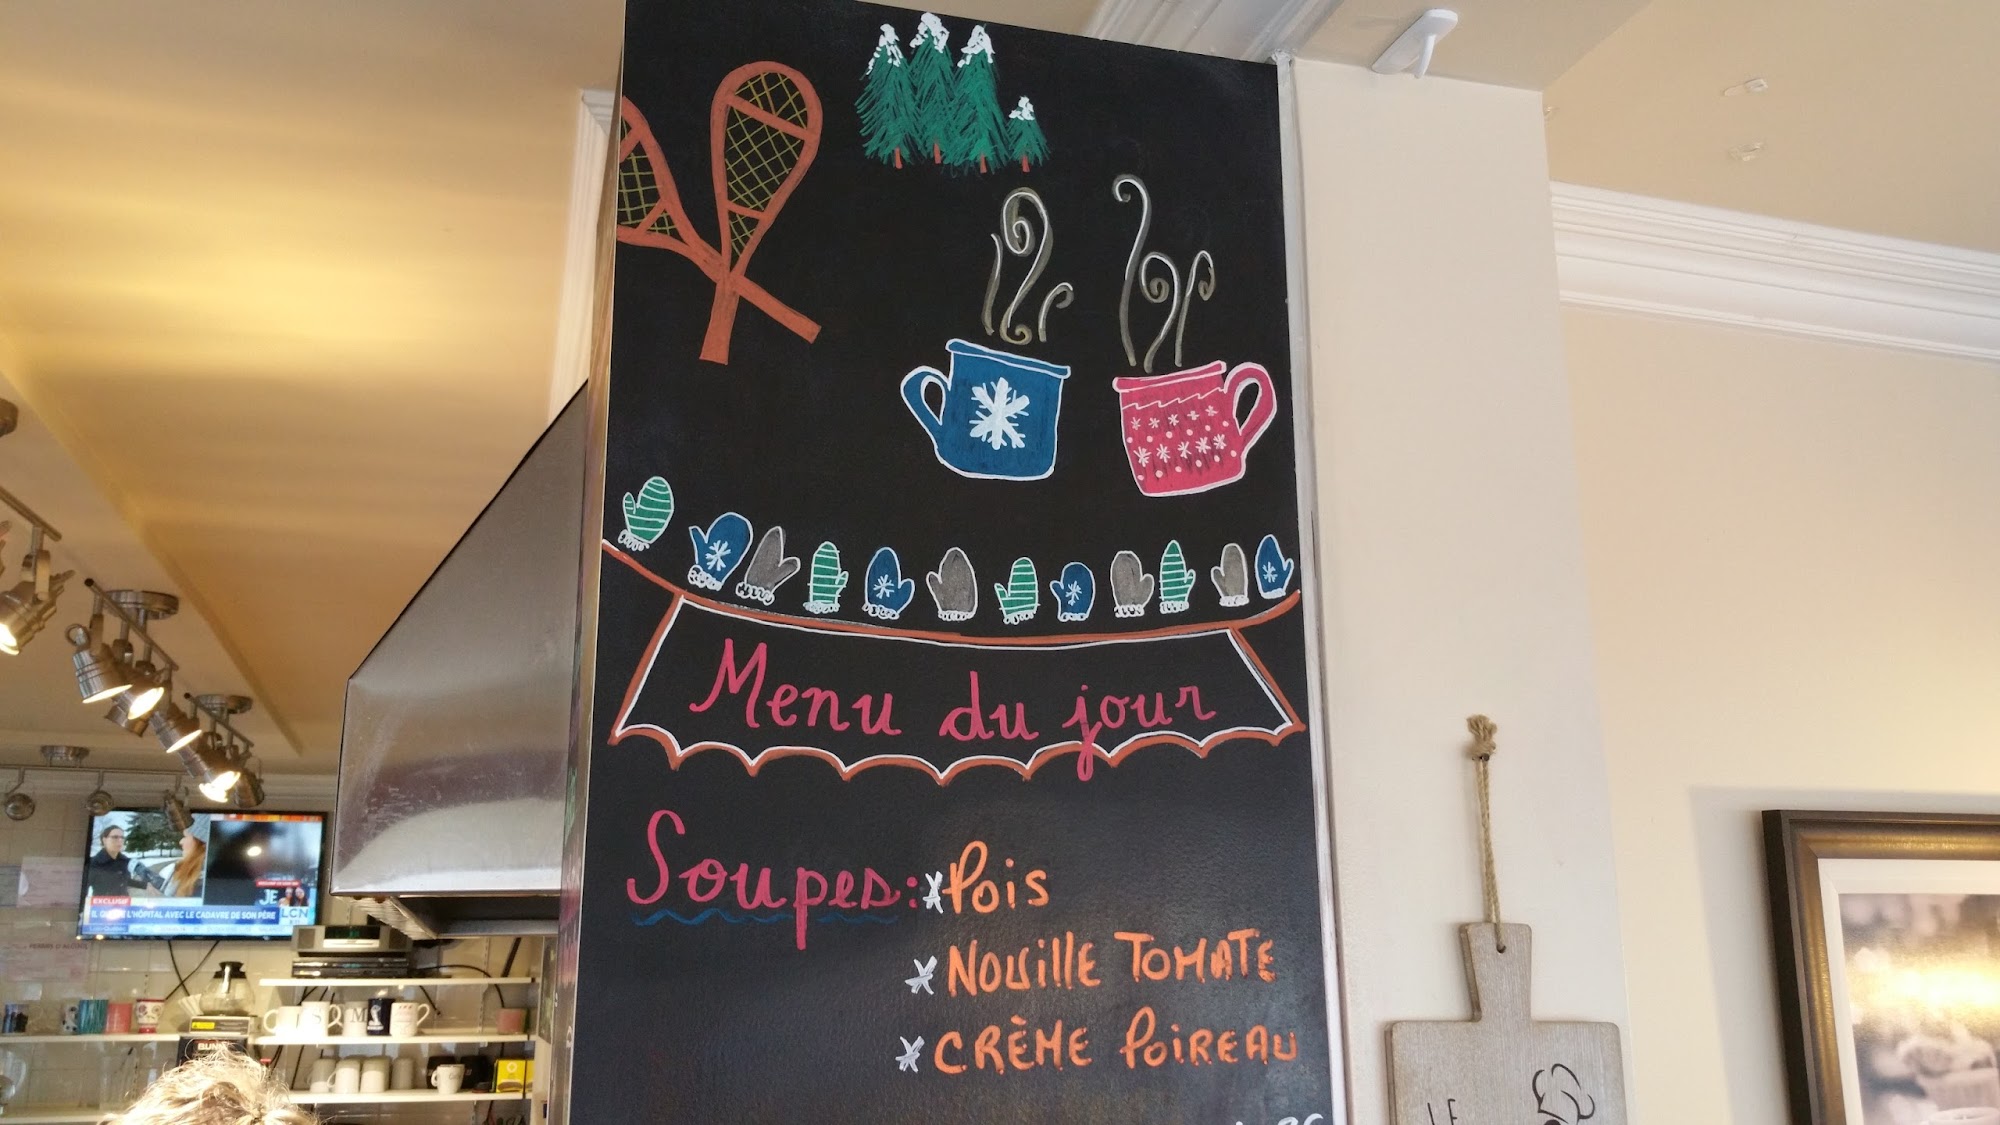 Menu du jour
Soupes: * Pois
* NOUILLE TOMATE
* CRÈME POIREAU
LE
EXCLUSIF
L'HÔPITAL AVEC LE CADAVRE DE SON PÈRE
JE
LCN
S M
BUNN